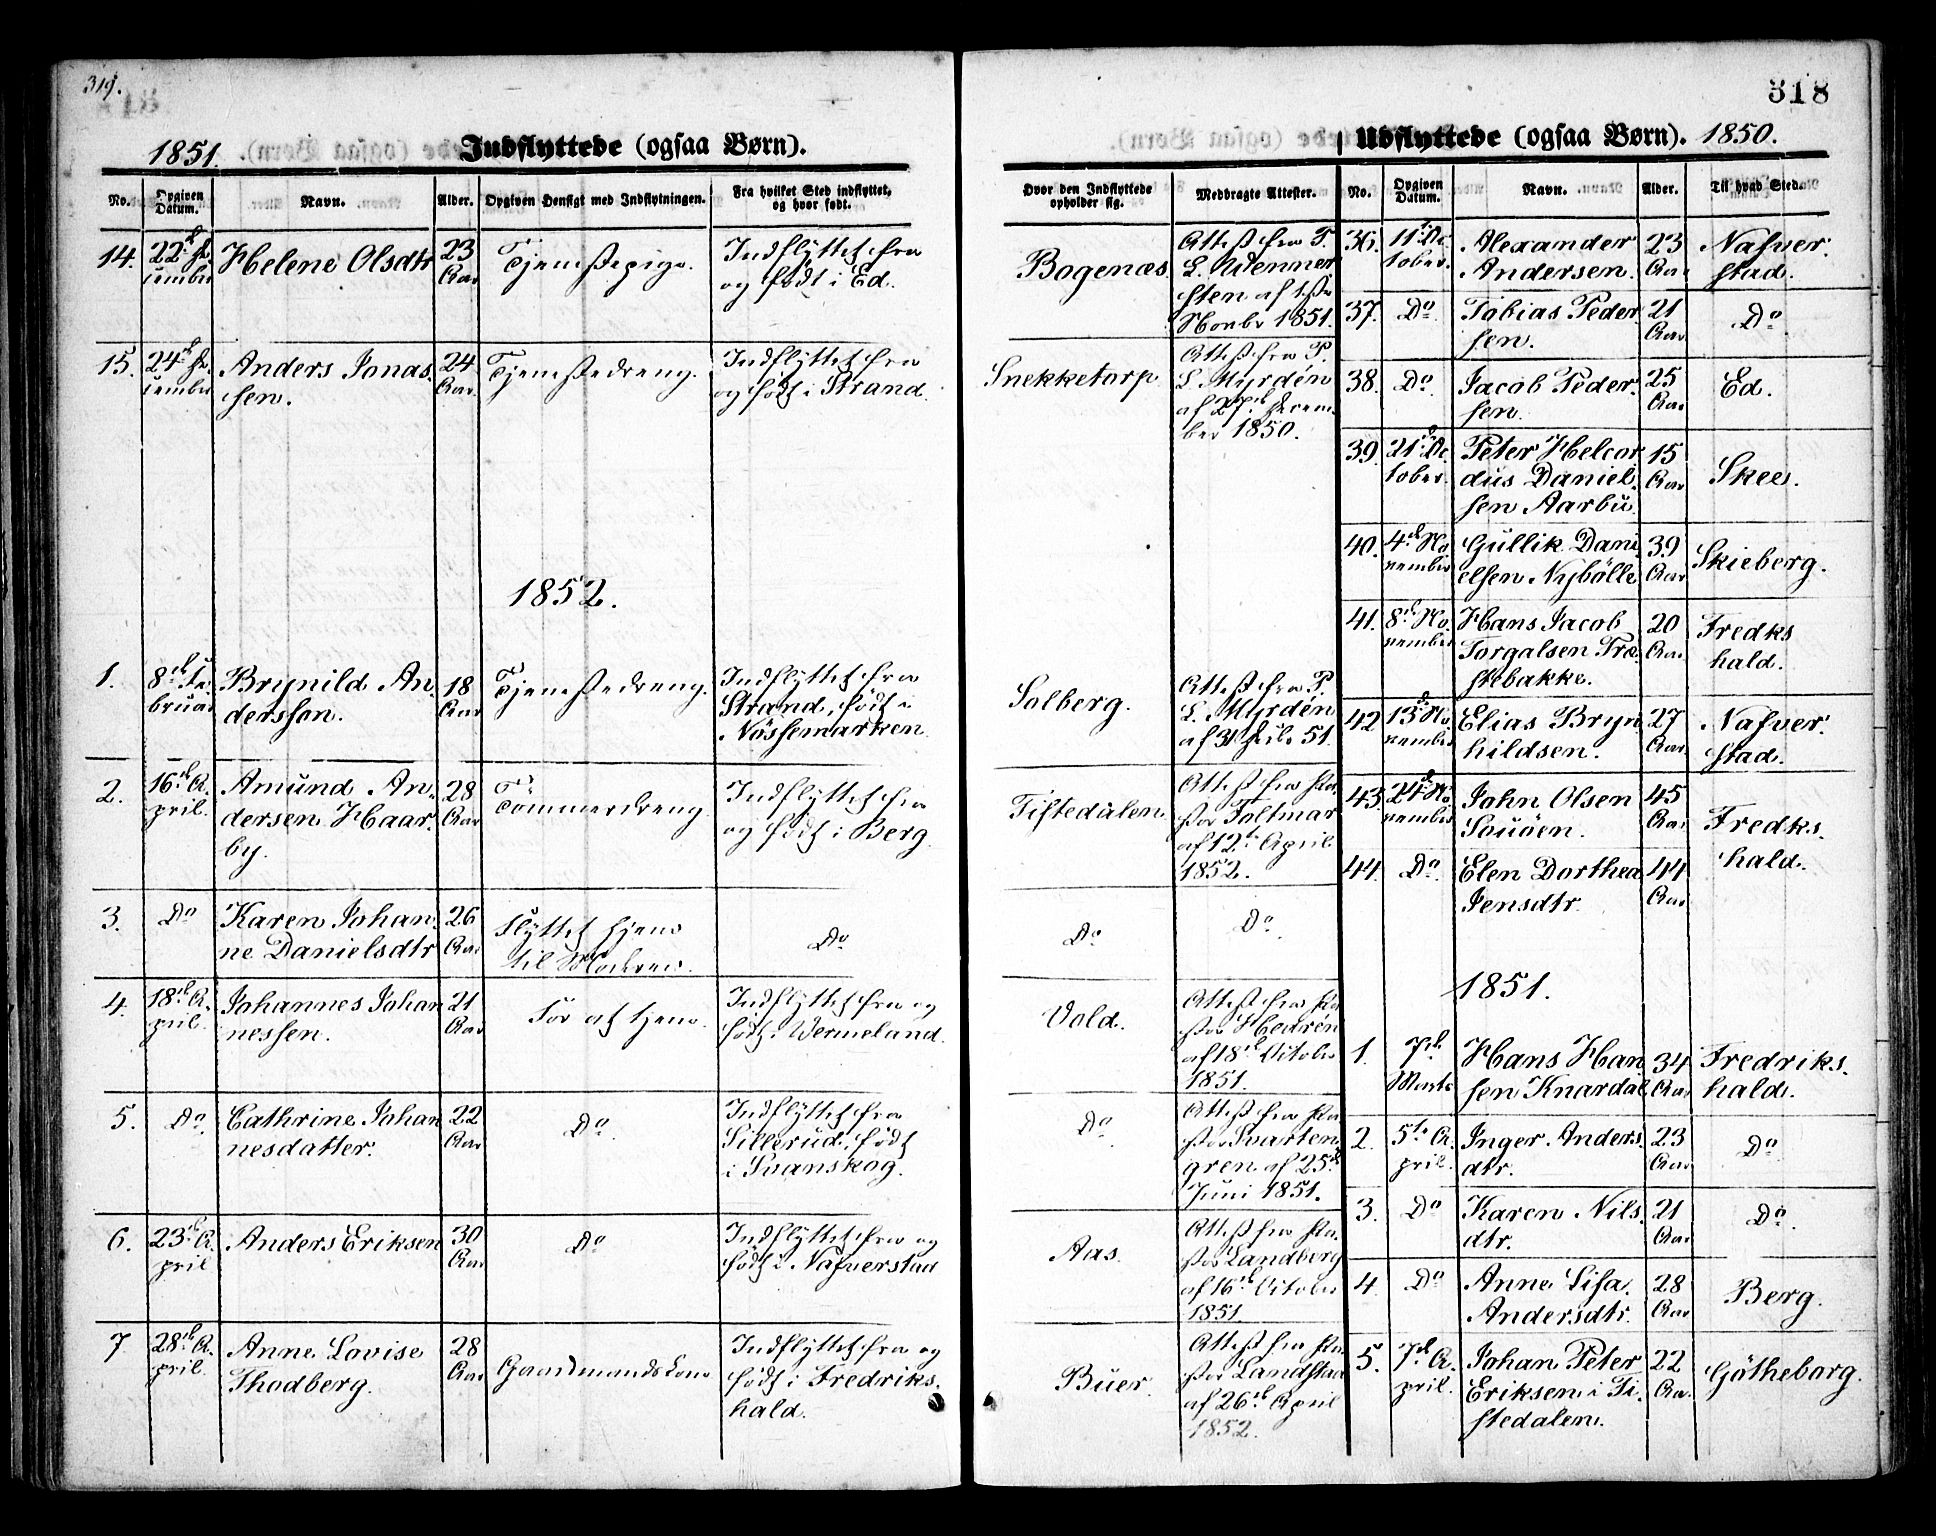 319.
318
1851. Indflyttede (ogsaa Børn).
Udflyttede (ogsaa Børn). 1850.
No.
Opgiven Datum.
Navn.
Alder.
Opgiven Hensigt med Indflytningen.
Fra hvilket Sted indflyttet, og hvor født.
Hvor den Indflyttede opholder sig.
Meddragte Attester.
14.
22de De
cember
Helene Olsdtr
23
Aar
Tjenestepige.
Indflyttet fra
og født i Ed.
Bogenæs.
Attest fra P.
L. Wenner
sten af 1ste
Novbr 1851.
15.
24de De
cember
Anders Jonas.
sen.
24
Aar
Tjenestedreng.
Indflyttet fra
og født i Strand.
Snekketorp
Attest fra P.
L. Myrdén
af 27de Decem
ber 1850.
1852.
1.
8de Fe
bruar
Brynild An
dersson.
18
Aar
Tjenestedreng.
Indflyttet fra
Strand, født i
Nössemarken.
Solberg.
Attest fra P.
L. Myrdén
af 31 51.
2.
16de A.
pril.
Amund An.
dersen Haar.
by.
28
Aar
Tömmerdreng
Indflyttet fra
og født i Berg.
Tistedalen
Attest fra Pa
stor Toltmar
af 12te April
1852.
3.
Do
Karen Johan
ne Danielsdtr
26
Aar
Flyttet hjem
til Moderen.
Do
Do
Do
4.
18de A.
pril.
Johannes Johan
nessen.
21
Aar
For at tjene.
Indflyttet fra og
født i Wermeland.
Vold.
Attest fra Pa
stor Hedrén
af 18de Octobr
1851.
5.
Do
Cathrine Johan
nesdatter.
22
Aar
Do
Indflyttet fra
Sillerud, født
i Svanskog.
Do
Attest fra Pa
stor Svarten
gren af 25de
Juni 1851.
6.
23de A.
pril
Anders Eriksen
30
Aar
Do
Indflyttet fra og
født i Nafverstad
Aas.
Attest fra Pa.
stor Landberg
af 16de Octobr
1851
7
28de A.
pril.
Anne Lovise
Thodberg.
28
Aar
Gaardmandskone
Indflyttet fra og
født i Fredriks.
hald.
Buer.
Attest fra Pa
stor Landstad
af 26de April
1852.
No.
Opgiven Datum.
Navn.
Alder.
Til hvad Sted.
36.
11te Oc
tober.
Alexander
Andersen.
23
Aar
Nafver.
stad.
37.
Do
Tobias Peder
sen.
21
Aar
Do
38.
Do
Jacob Peder.
sen.
25
Aar
Ed.
39.
21de Oc
tober.
Peter Helcor
dus Daniel.
sen Aarbu
15
Aar
Skee.
40.
4de No
vember
Gullik Dani
elsen Nybölle
39
Aar
Skieberg.
41.
8de No.
vember
Hans Jacob
Torgalsen Træ
stebakke.
20
Aar
Fredks
hald.
42
13de No
vember
Elias Bryn
hildsen.
27
Aar
Nafver.
stad.
43.
24de No
vember
John Olsen
Souöen.
45
Aar
Fredks.
hald.
44.
Do
Elen Dorthea
Jensdtr
44
Aar
1851.
1.
7de
Marts
Hans Han
sen Knardal
34
Aar
Fredriks.
hald.
2.
5te A.
pril.
Inger Anders.
dtr.
23
Aar
Do
3.
Do
Karen Nils.
dtr.
21
Aar
Do
4.
Do
Anne Lisa
Andersdtr.
28
Aar
Berg.
5.
7de A.
pril.
Johan Peter
Eriksen i Ti
stedalen.
22
Aar.
Götheborg.